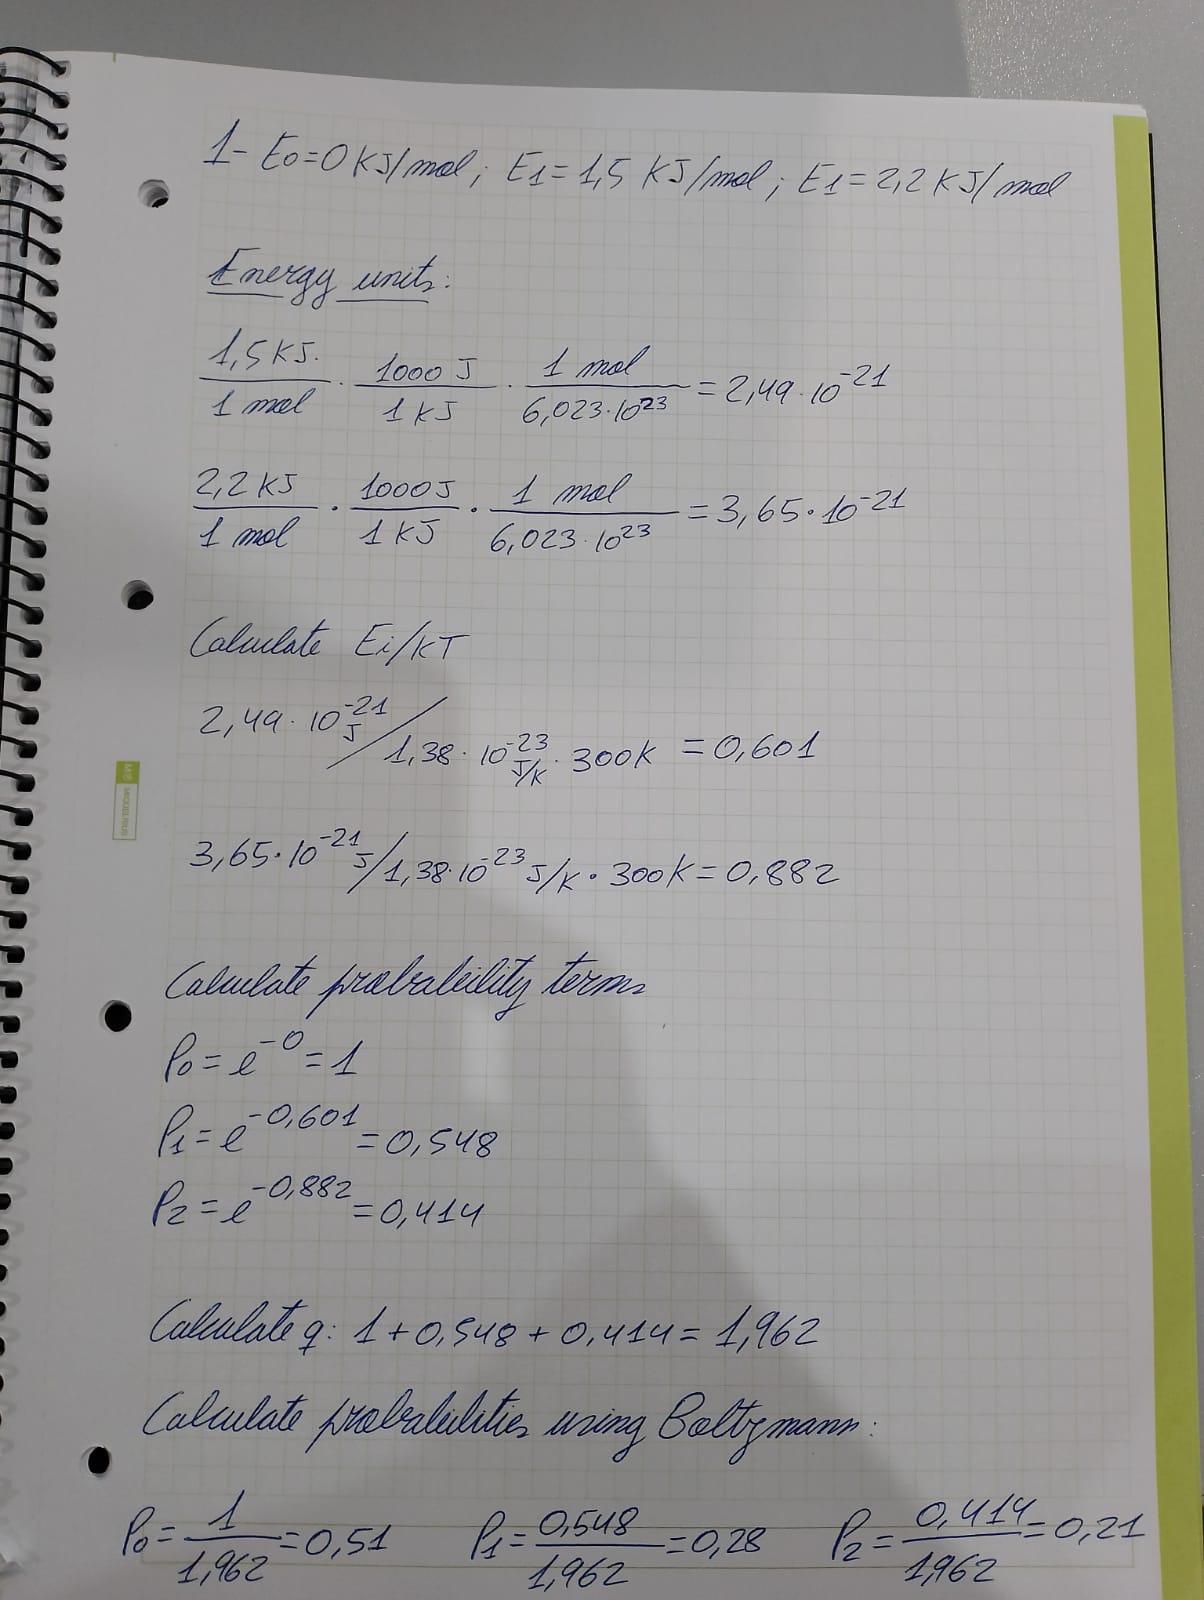 1- E0=0 KJ/mol; E1=1,5 KJ/mol; E1=2,2 KJ/mol
Energy units:
1,5 KJ. / 1 mol · 1000 J / 1 KJ · 1 mol / 6,023·10^23 = 2,49·10^-21
2,2 KJ / 1 mol · 1000 J / 1 KJ · 1 mol / 6,023·10^23 = 3,65·10^-21
Calculate Ei/KT
2,49·10^-21 J / 1,38·10^-23 J/K · 300K = 0,601
3,65·10^-21 J / 1,38·10^-23 J/K · 300K = 0,882
Calculate probability terms
P0 = e^-0 = 1
P1 = e^-0,601 = 0,548
P2 = e^-0,882 = 0,414
Calculate q: 1+0,548+0,414 = 1,962
Calculate probabilities using Boltzmann:
P0 = 1 / 1,962 = 0,51 P1 = 0,548 / 1,962 = 0,28 P2 = 0,414 / 1,962 = 0,21